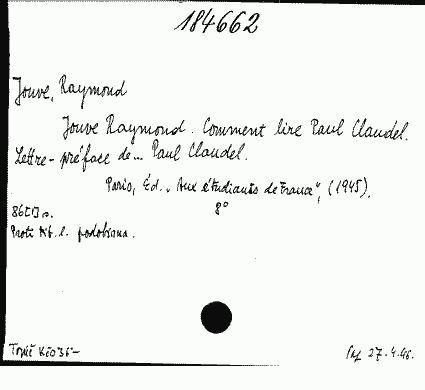 184662
Jouve, Raymond
Jouve Raymond. Comment lire Paul Claudel.
Lettre-préface de... Paul Claudel.
Paris, Éd. „Aux étudiants de France", (1945).
86[1] s. 8°
Proti tit. l. podobizna.
27.4.46.